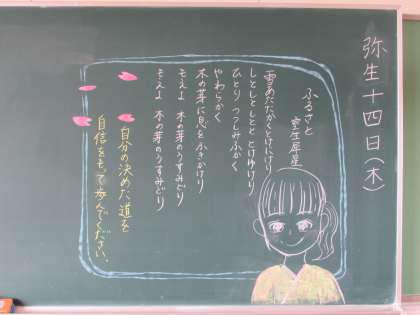 弥生十四日(木)
ふるさと
室生犀星
雪あたたかくとけにけり
しとしとしとと とけゆけり
ひとり つつしみふかく
やわらかく
木の芽に息をふきかけり
もえよ 木の芽のうすみどり
もえよ 木の芽のうすみどり
自分の決めた道を
自信をもって歩んでください。